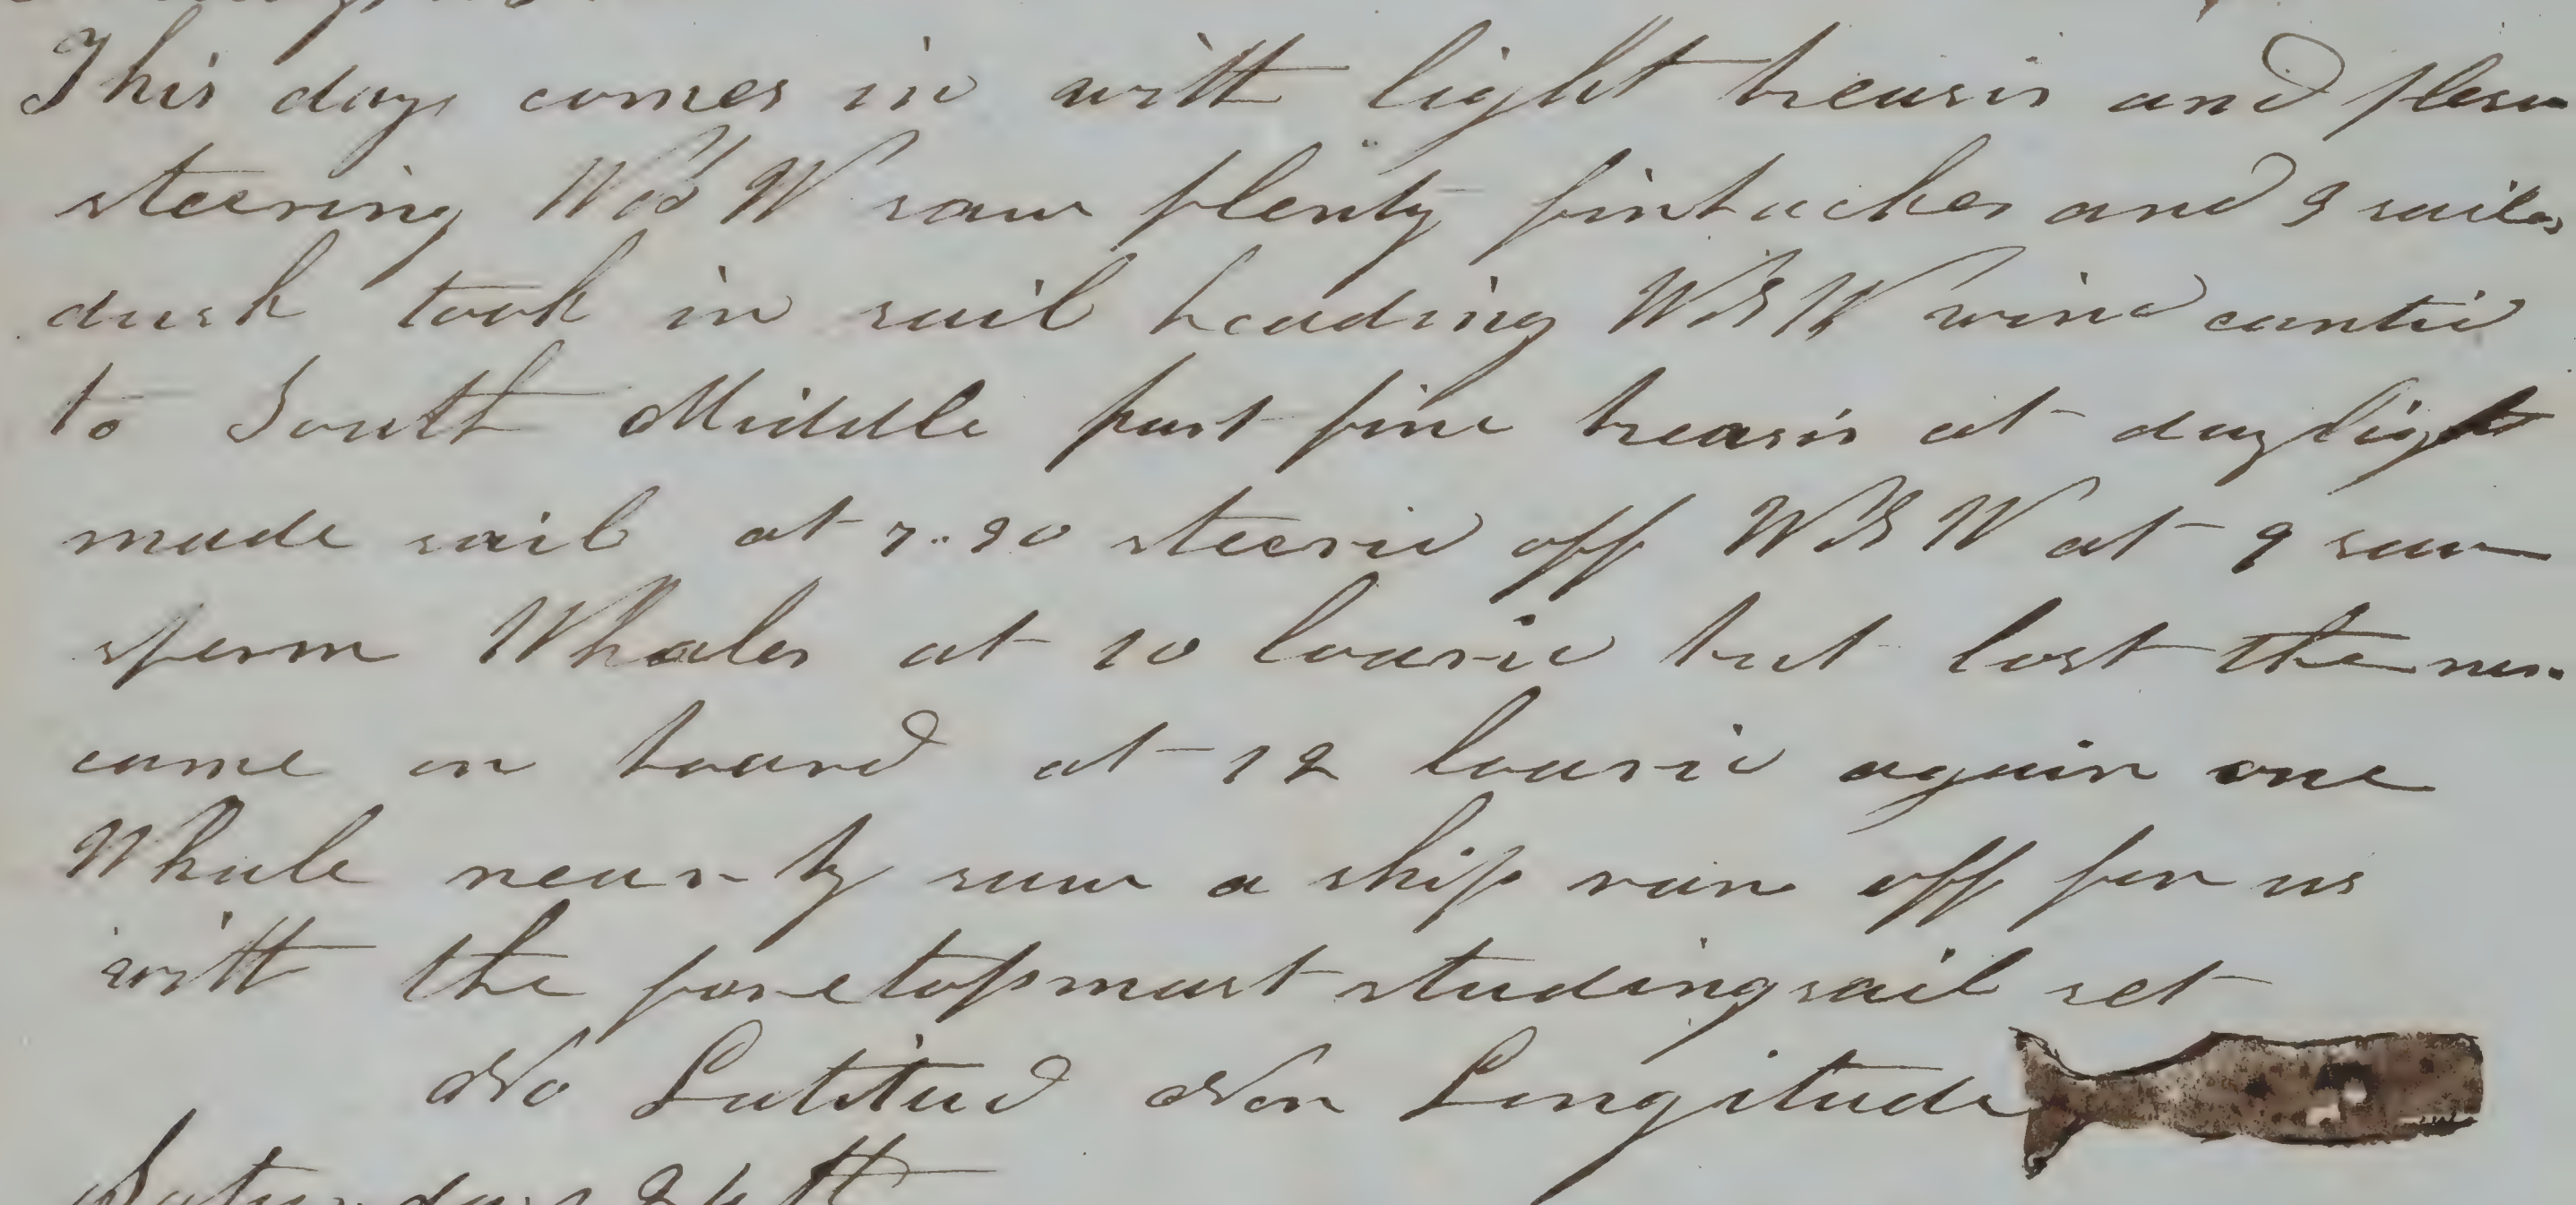 This day comes in witt light breasis and pleas
steering WSW saw plenty finbackes and 3 sailes
dusk took in sail heading WSW wind cantid
to Soutt Middle part fine breasis at daylight
made sail at 7..30 steerid off WSW at 9 saw
sperm Whales at 10 lourid but lost them
came on board at 12 lourid again one
Whale near by saw a ship run off for us
witt the foretopmast studingsail set
No Latitud Nor Longitude
Saturday 24tt